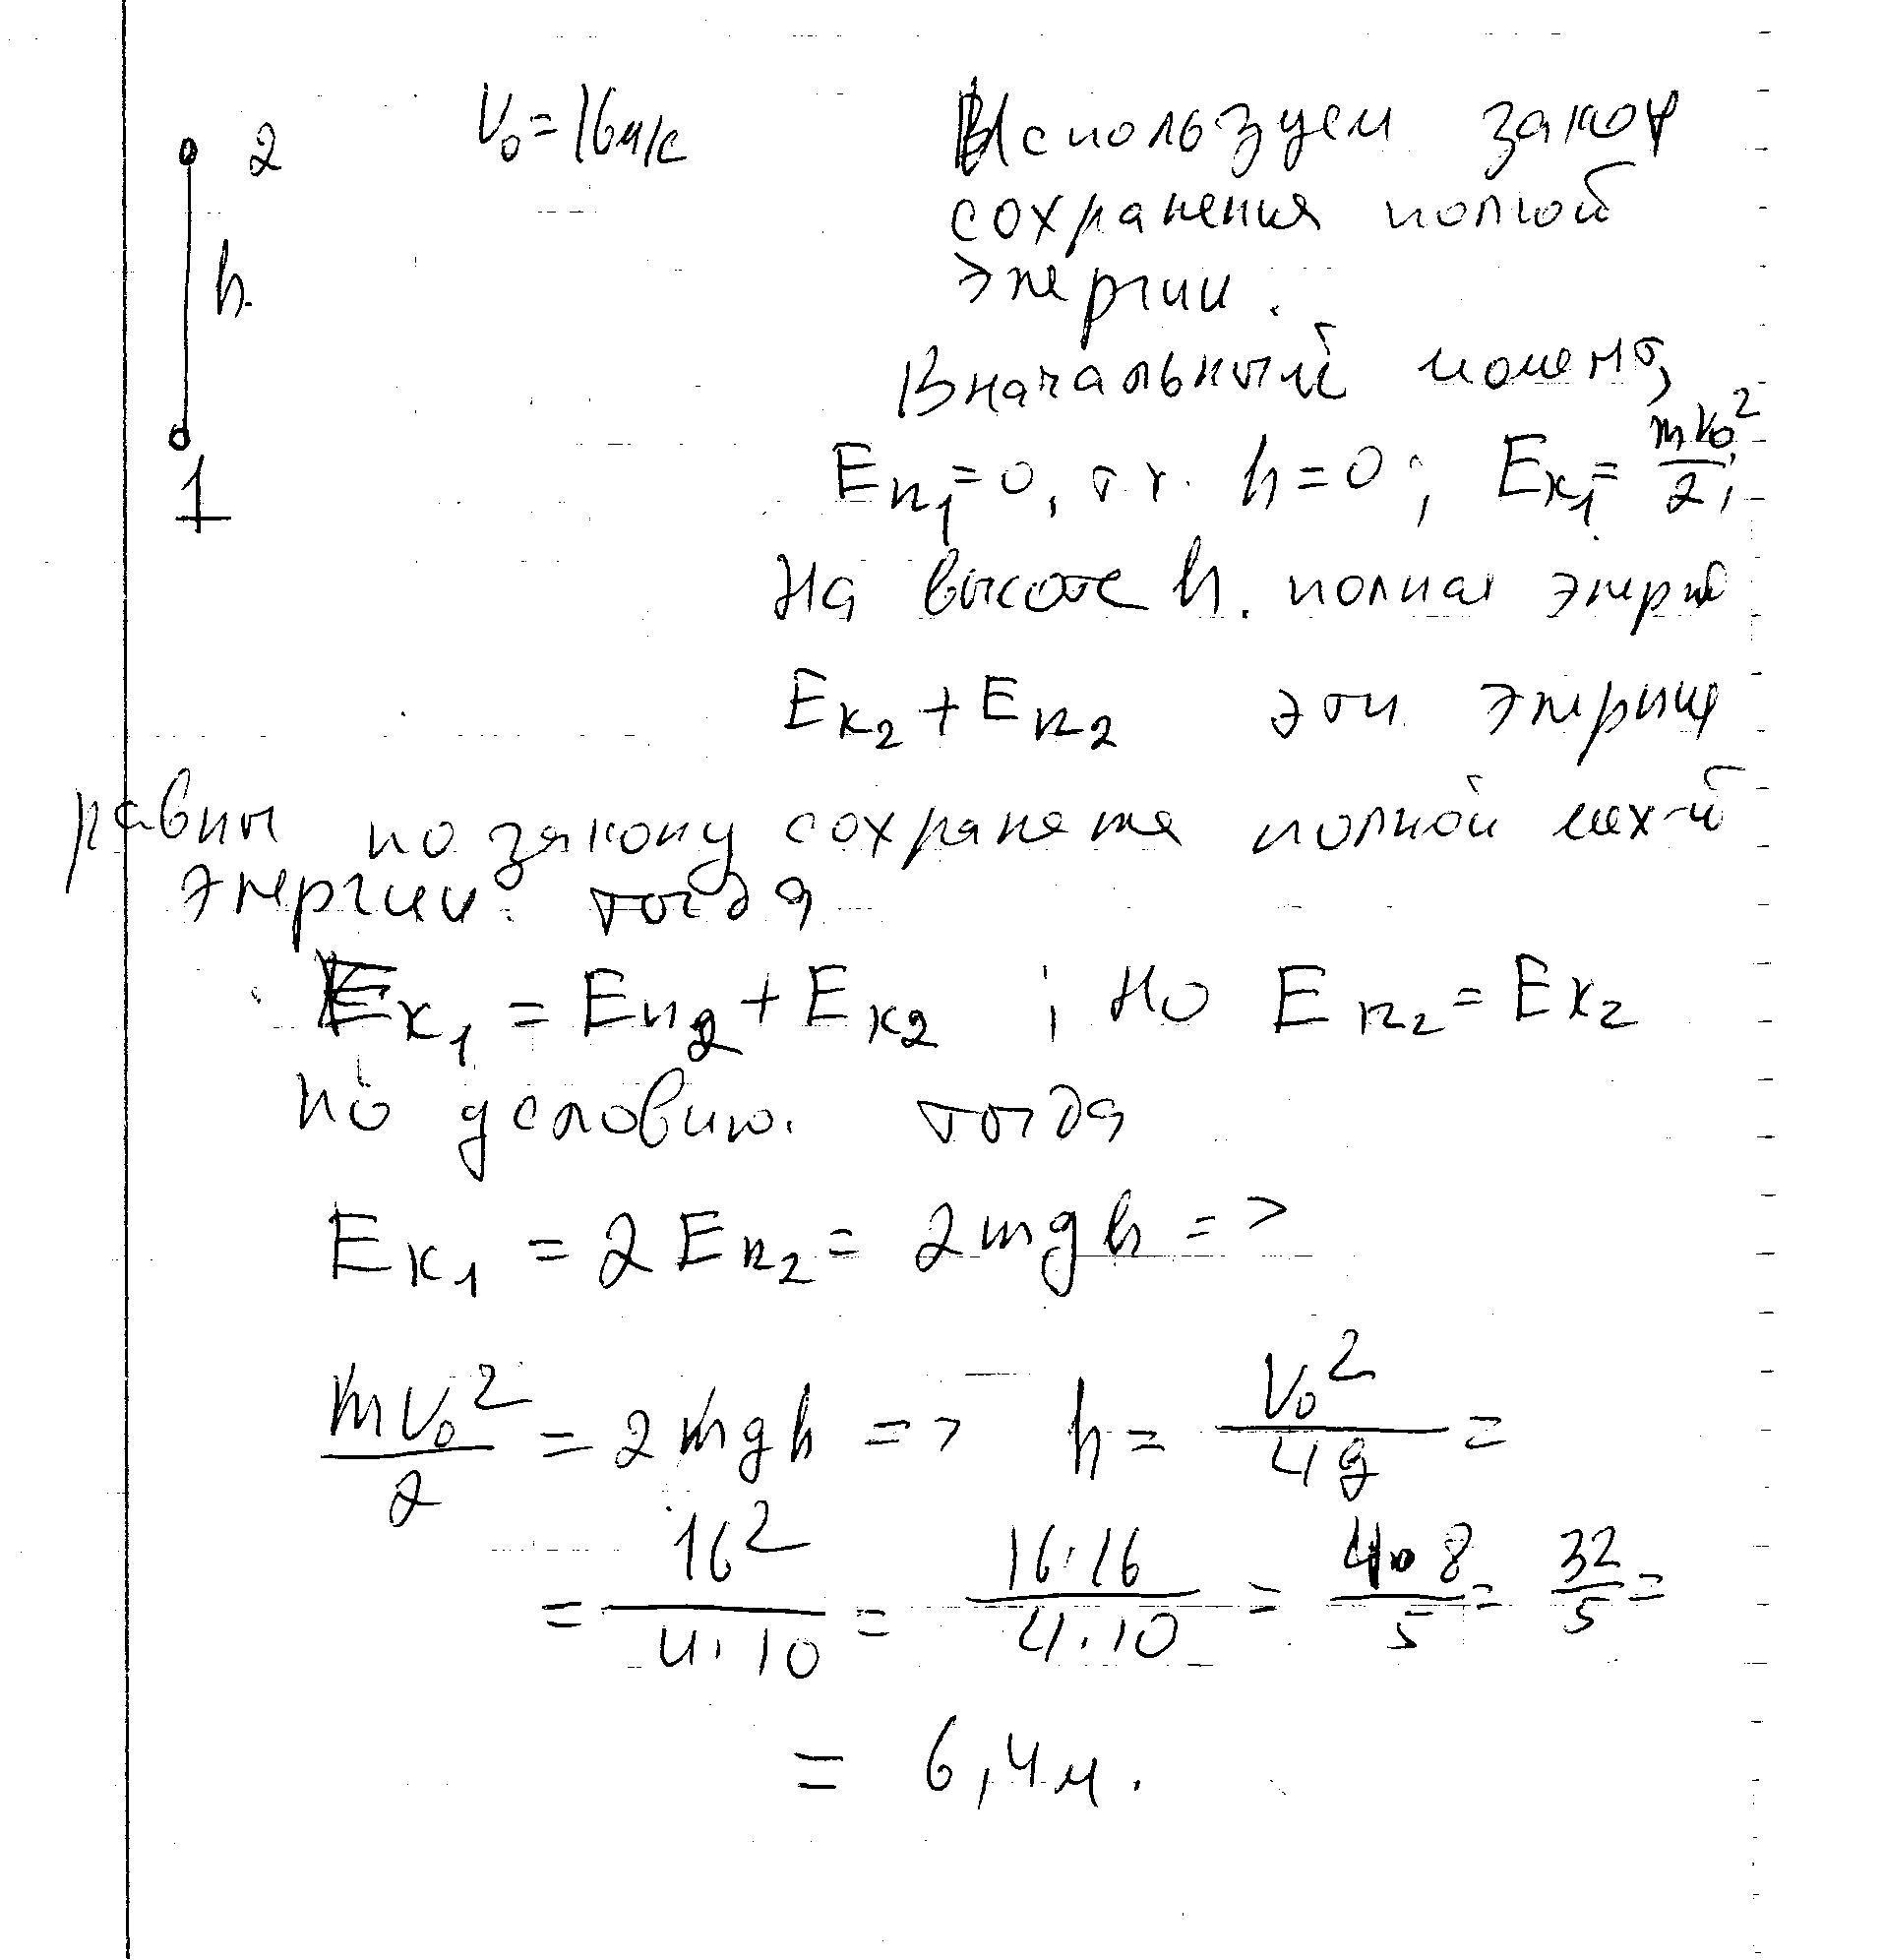 2
V₀ = 16 м/с
Используем закон
сохранения полной
энергии.
h.
В начальный момент,
Eп₁ = 0, т.к. h = 0; Eк₁ = mV₀²/2;
1
На высоте h. полная энергия
Eк₂ + Eп₂ эти энергии
равны по закону сохранения полной мех-й
энергии. тогда
Eк₁ = Eп₂ + Eк₂ ; но Eп₂ = Eк₂
по условию. тогда
Eк₁ = 2Eп₂ = 2mgh =>
mV₀²/2 = 2mgh => h = V₀²/4g =
= 16²/4·10 = 16·16/4·10 = 4·8/5 = 32/5 =
= 6,4 м.